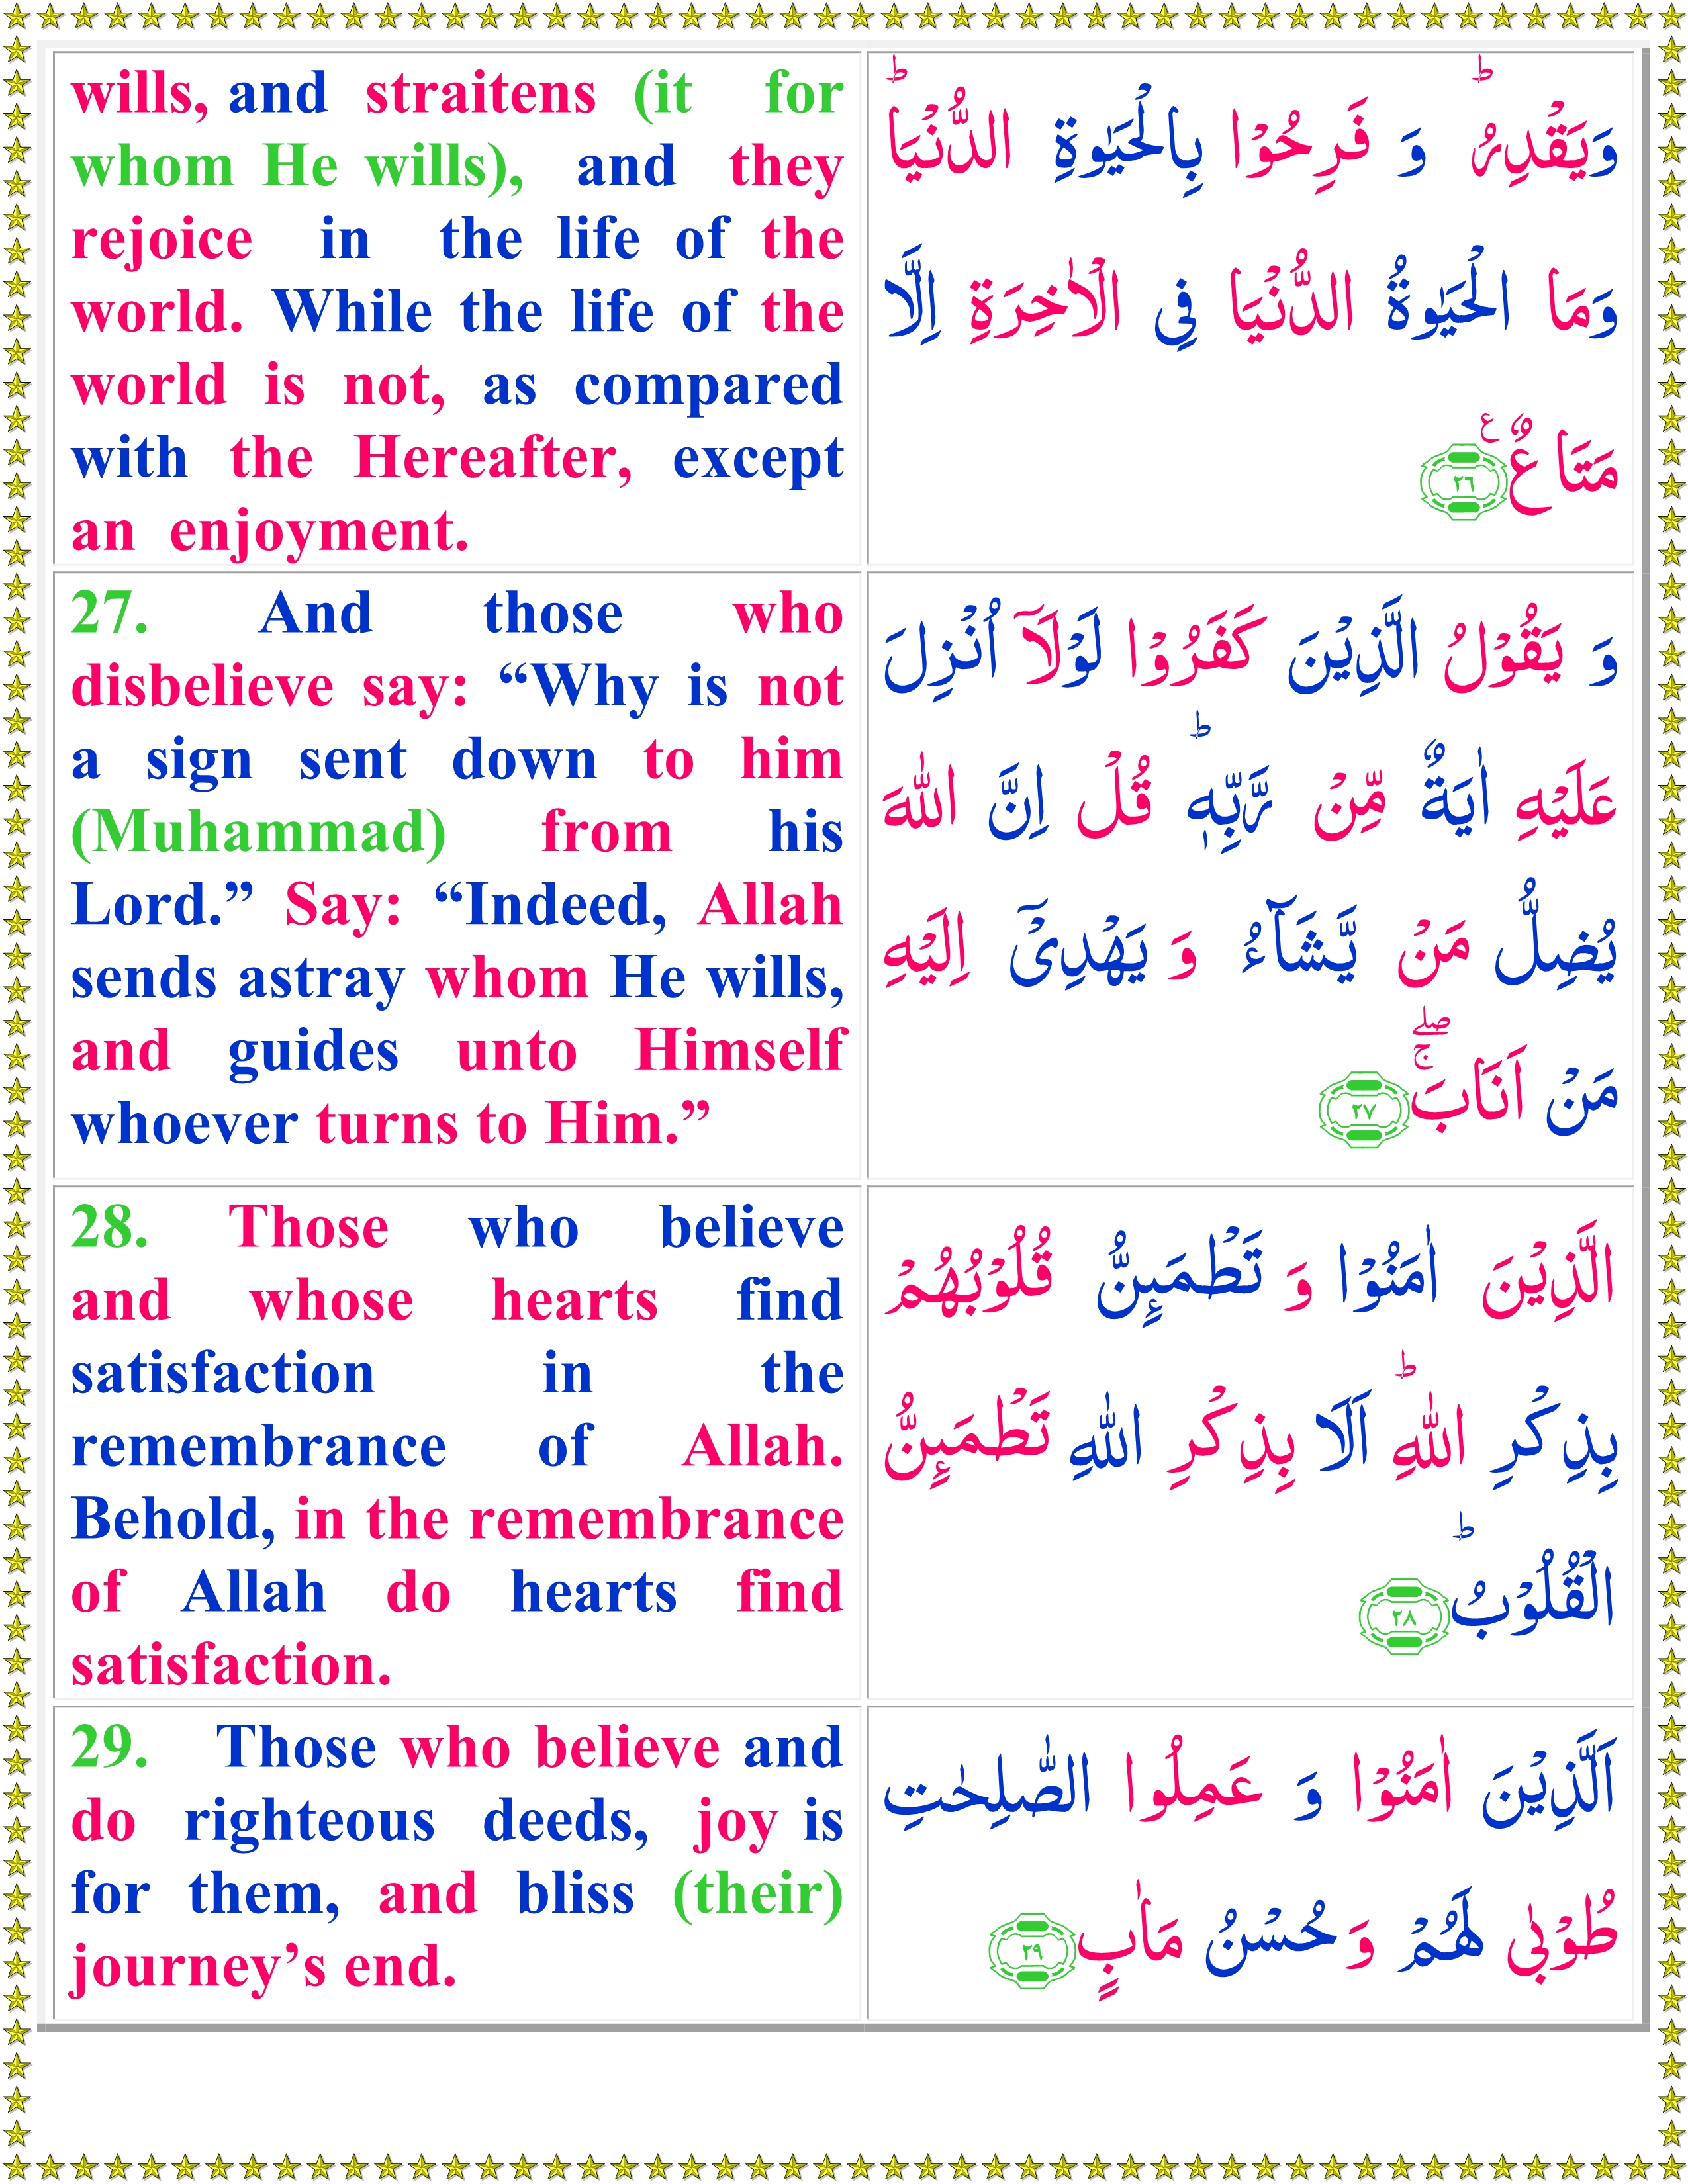 wills, and straitens (it for
whom He wills), and they
rejoice in the life of the
world. While the life of the
world is not, as compared
with the Hereafter, except
an enjoyment.
وَيَقْدِرُ ؕ وَ فَرِحُوْا بِالْحَيٰوةِ الدُّنْيَا ؕ
وَمَا الْحَيٰوةُ الدُّنْيَا فِى الْاٰخِرَةِ اِلَّا
مَتَاعٌ ع ٢٦
27. And those who
disbelieve say: “Why is not
a sign sent down to him
(Muhammad) from his
Lord.” Say: “Indeed, Allah
sends astray whom He wills,
and guides unto Himself
whoever turns to Him.”
وَ يَقُوْلُ الَّذِيْنَ كَفَرُوْا لَوْلَاۤ اُنْزِلَ
عَلَيْهِ اٰيَةٌ مِّنْ رَّبِّهٖ ؕ قُلْ اِنَّ اللّٰهَ
يُضِلُّ مَنْ يَّشَآءُ وَ يَهْدِىْۤ اِلَيْهِ
مَنْ اَنَابَ ۖۚ ٢٧
28. Those who believe
and whose hearts find
satisfaction in the
remembrance of Allah.
Behold, in the remembrance
of Allah do hearts find
satisfaction.
الَّذِيْنَ اٰمَنُوْا وَ تَطْمَىِٕنُّ قُلُوْبُهُمْ
بِذِكْرِ اللّٰهِ ؕ اَلَا بِذِكْرِ اللّٰهِ تَطْمَىِٕنُّ
الْقُلُوْبُ ؕ ٢٨
29. Those who believe and
do righteous deeds, joy is
for them, and bliss (their)
journey’s end.
اَلَّذِيْنَ اٰمَنُوْا وَ عَمِلُوا الصّٰلِحٰتِ
طُوْبٰى لَهُمْ وَحُسْنُ مَاٰبٍ ٢٩